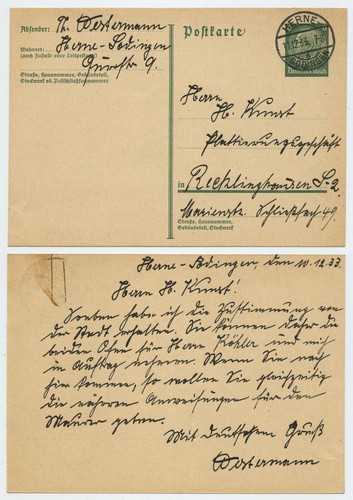 Absender: Th. Destermann
Wohnort: Herne-Sodingen
(auch Zustell- oder Leitpostamt)
Gurstr 9.
Straße, Hausnummer, Gebäudeteil,
Stockwerk od. Postschließfachnummer
Postkarte
HERNE-
11.12.33. 7-8
SODINGEN
Deutsches Reich
Herrn
Hh. Kunst
Plattierungsgeschäft
in Recklinghausen S-2
Marienstr. Schließfach 49.
Straße, Hausnummer,
Gebäudeteil, Stockwerk
Herne-Sodingen, den 10.12.33.
Herrn Hh. Kunst!
Soeben habe ich die Zustimmung von
der Stadt erhalten. Sie können daher die
beiden Öfen für Herrn Köhler und mich
in Auftrag nehmen. Wenn Sie nach
hier kommen, so wollen Sie gleichzeitig
die näheren Anweisungen für den
Maurer geben.
Mit deutschem Gruß
Destermann